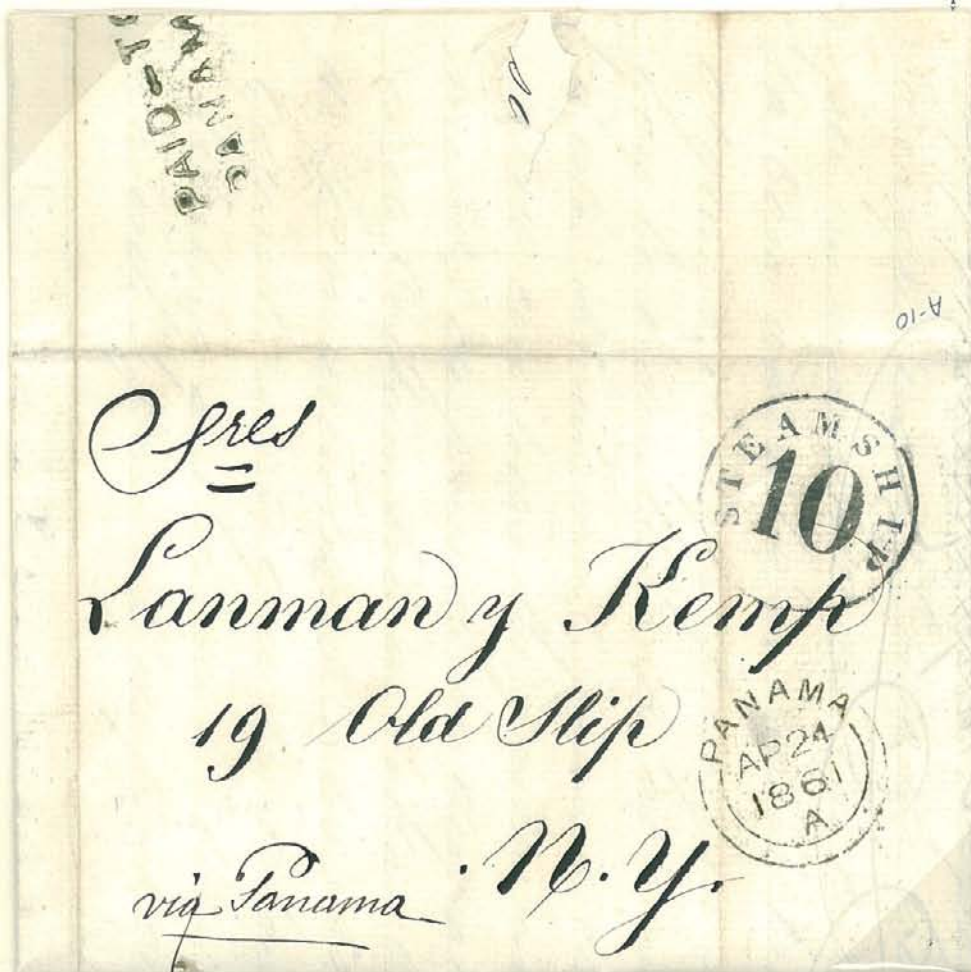 PAID-TO
PANAM
A-10
Sres
STEAMSHIP
10
Lanman y Kemp
19 Old Slip
PANAMA
AP 24
1861
A
N.Y.
via Panama